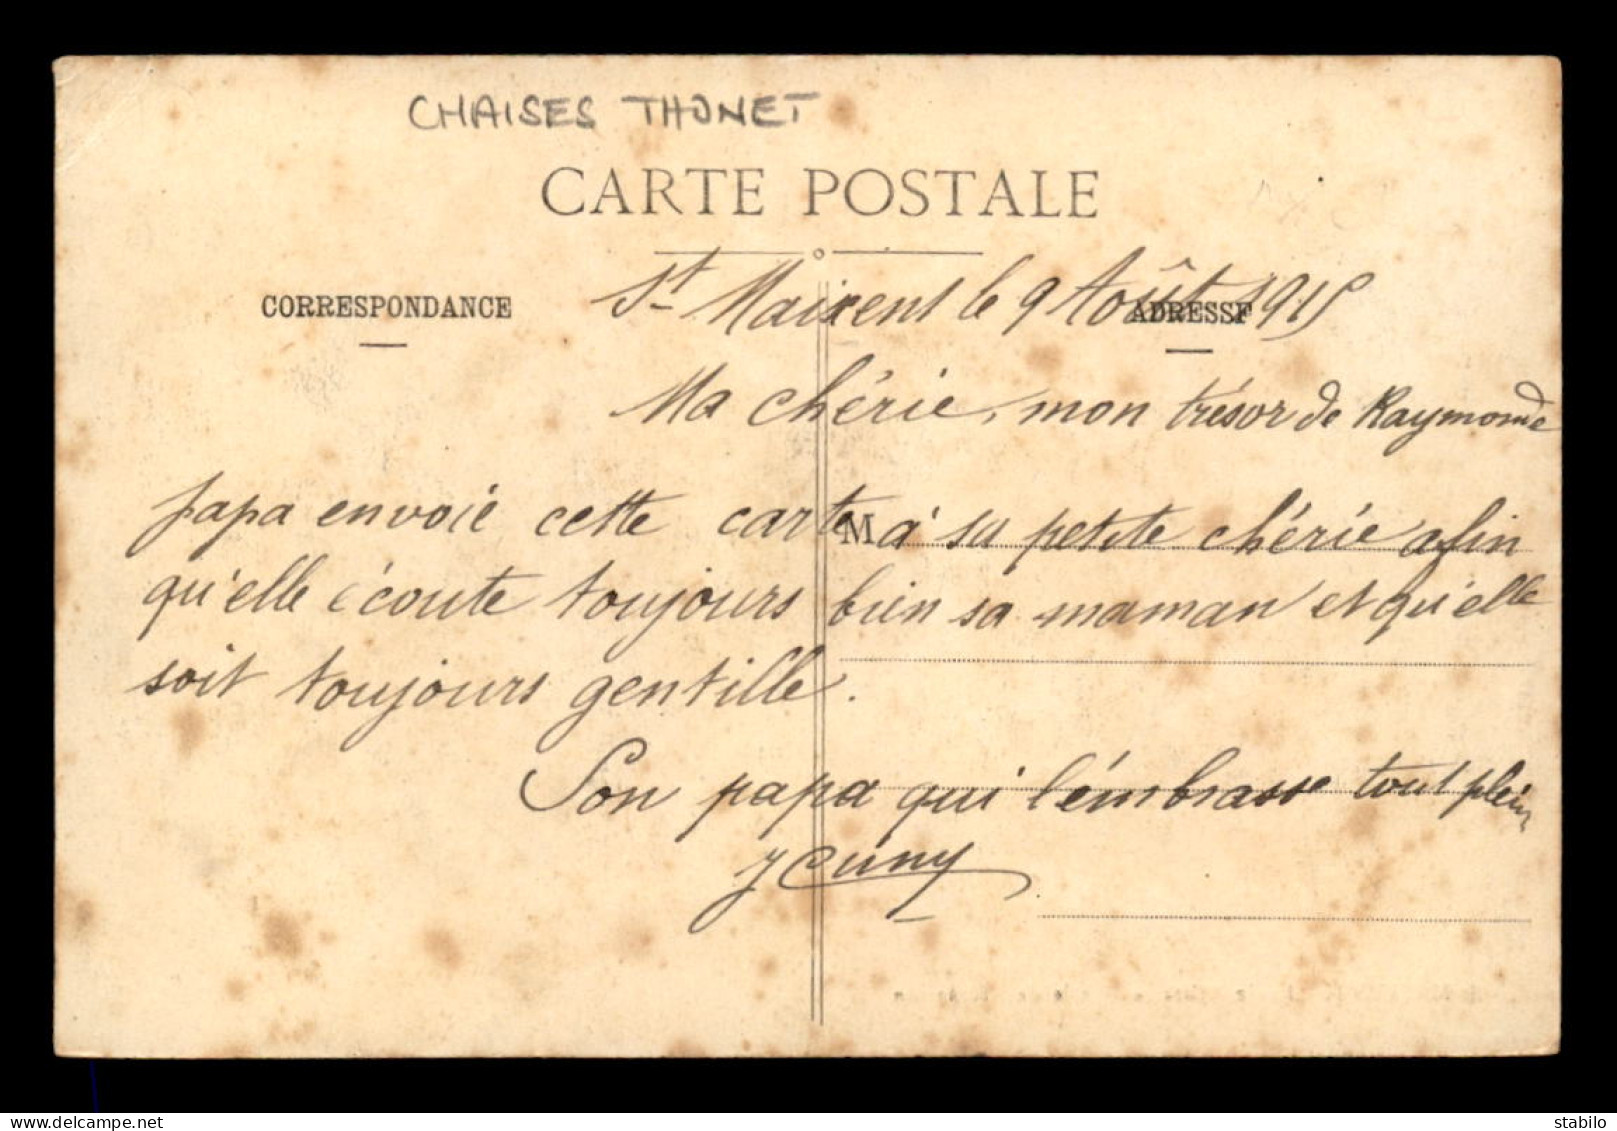 CHAISES THONET
CARTE POSTALE
CORRESPONDANCE
ADRESSE
St Maixent le 9 Août 1915
Ma chérie, mon trésor de Raymonde
papa envoie cette carte à sa petite chérie afin
M
qu'elle écoute toujours bien sa maman et qu'elle
soit toujours gentille.
Son papa qui l'émbrasse tout plein
J Cuny
delcampe.net
stabilo